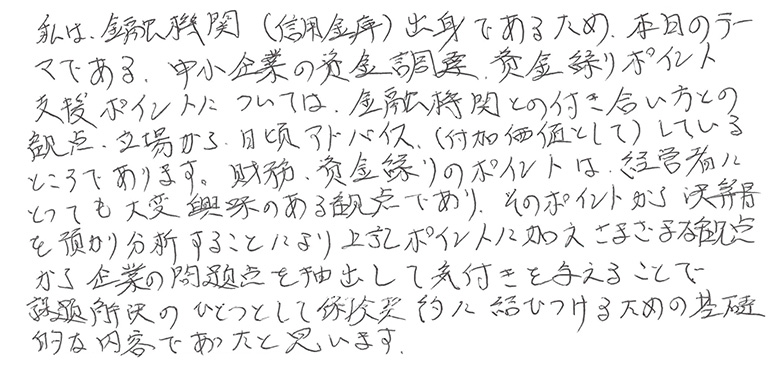 私は、金融機関（信用金庫）出身であるため、本日のテー
マである、中小企業の資金調達、資金繰りポイント
支援ポイントについては、金融機関との付き合い方との
観点、立場から、日頃アドバイス、（付加価値として）している
ところであります。財務、資金繰りのポイントは、経営者に
とっても大変興味のある観点であり、そのポイントから決算書
を預かり分析することにより上記ポイントに加えさまざまな観点
から企業の問題点を抽出して気付きを与えることで
課題解決のひとつとして保険契約に結びつけるための基礎
的な内容であったと思います。